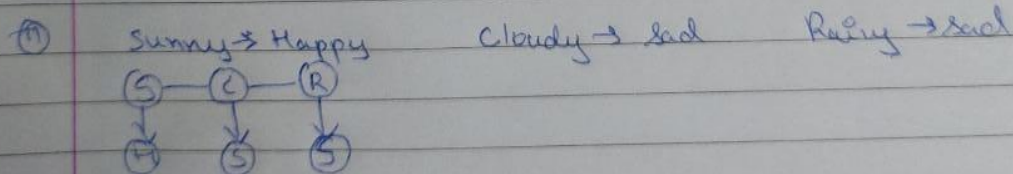 Sunny → Happy Cloudy → Sad Rainy → Sad
S C R
H S S